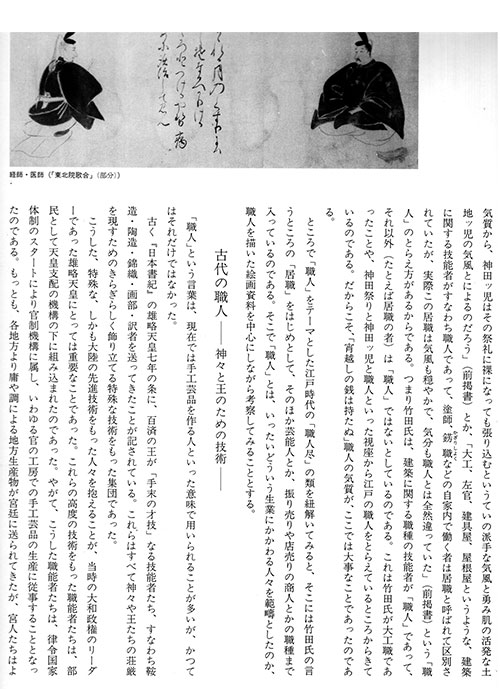 経師・医師（「東北院歌合」（部分））
気質から、神田ッ児はその祭礼に裸になっても張り込むというていの派手な気風と勇み肌の活発な土
地ッ児の気風とによるのだろう」（前掲書）とか、「大工、左官、建具屋、屋根屋というような、建築
に関する技能者がすなわち職人であって、塗師、錺職などの自家内で働く者は居職と呼ばれて区別さ
れていたが、実際この居職は気風も穏やかで、気分も職人とは全然違っていた」（前掲書）という「職
人」のとらえ方があるからである。つまり竹田氏は、建築に関する職種の技能者が「職人」であって、
それ以外（たとえば居職の者）は「職人」ではないとしているのである。これは竹田氏が大工職であ
ったことや、神田祭りと神田ッ児と職人といった視座から江戸の職人をとらえているところからきて
いるのである。だからこそ、「宵越しの銭は持たぬ」職人の気質が、ここでは大事なことであったのであ
る。
ところで「職人」をテーマとした江戸時代の「職人尽」の類を紐解いてみると、そこには竹田氏の言
うところの「居職」をはじめとして、そのほか芸能人とか、振り売りや店売りの商人とかの職種まで
入っているのである。そこで「職人」とは、いったいどういう生業にかかわる人々を範疇としたのか、
職人を描いた絵画資料を中心にしながら考察してみることとする。
古代の職人――神々と王のための技術――
「職人」という言葉は、現在では手工芸品を作る人といった意味で用いられることが多いが、かつて
はそれだけではなかった。
古く『日本書紀』の雄略天皇七年の条に、百済の王が「手末の才技」なる技能者たち、すなわち鞍
造・陶造・錦織・画部・訳者を送ってきたことが記されている。これらはすべて神々や王たちの荘厳
を現すためのきらぎらしく飾り立てる特殊な技術をもった集団であった。
こうした、特殊な、しかも大陸の先進技術をもった人々を抱えることが、当時の大和政権のリーダ
ーであった雄略天皇にとっては重要なことであった。これらの高度の技術をもった職能者たちは、部
民として天皇支配の機構の下に組み込まれたのであった。やがて、こうした職能者たちは、律令国家
体制のスタートにより官制機構に属し、いわゆる官の工房での手工芸品の生産に従事することとなっ
たのである。もっとも、各地方より庸や調による地方生産物が宮廷に送られてきたが、宮人たちはよ